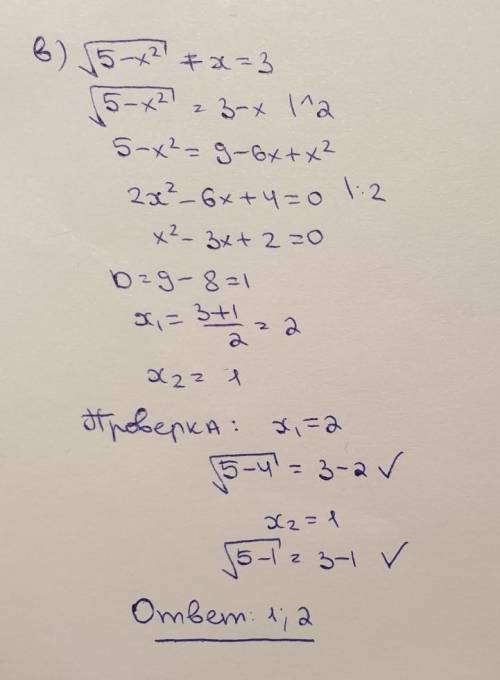 в) √(5-x²) + x = 3
√(5-x²) = 3-x |^2
5-x² = 9-6x+x²
2x²-6x+4=0 |:2
x²-3x+2=0
D=9-8=1
x₁ = (3+1)/2 = 2
x₂ = 1
Проверка: x₁=2
√(5-4) = 3-2 ✓
x₂=1
√(5-1) = 3-1 ✓
Ответ: 1; 2